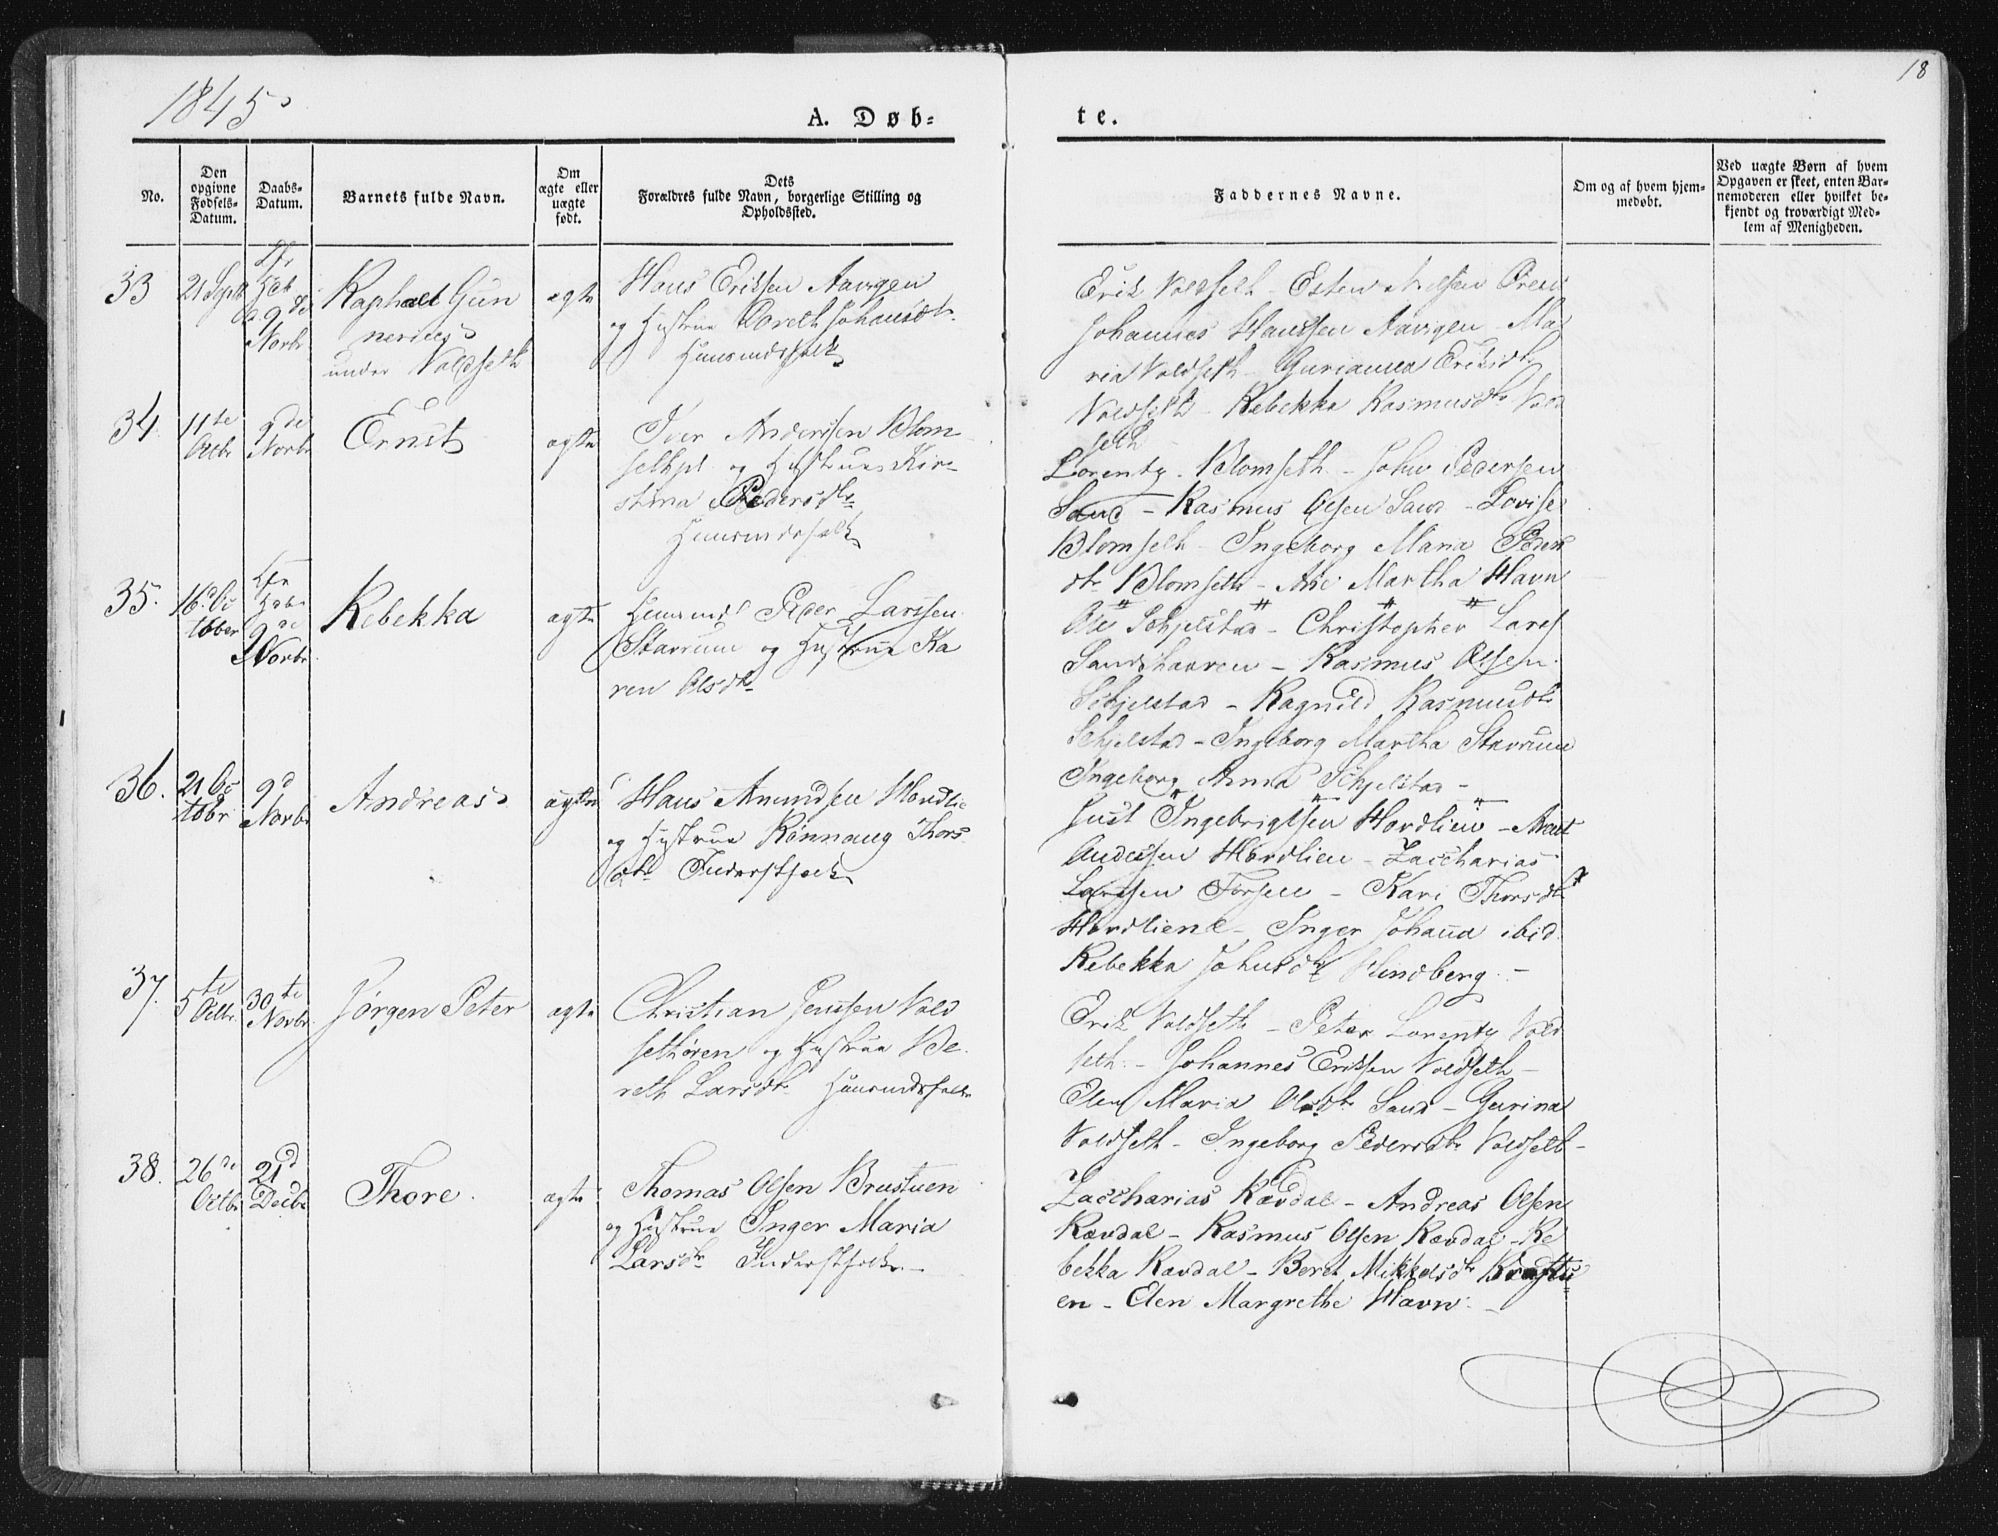 1845
18
A. Døb=
te.
No.
Den opgivne Fødsels-Datum.
Daabs-Datum.
Barnets fulde Navn.
Om ægte eller uægte født.
Dets Forældres fulde Navn, borgerlige Stilling og Opholdssted.
Faddernes Navne.
Om og af hvem hjem-medøbt.
Ved uægte Børn af hvem Opgaven er skeet, enten Bar-nemoderen eller hvilket be-kjendt og troværdigt Med-lem af Menigheden.
33
21 Septb
9de
Novbr
Raphael Gun
nerius
under Voldseth
ægte
Hans Eriksen Aavigen
og Hustrue Doreth Johansdtr
Huusmdsfolk
Erik Voldseth - Esten Nelsen
Johannes Hanssen Aavigen - Ma
ria Voldseth - Eriksdtr
Voldseth - Rebekka Rasmusdtr Vold
seth
34
11te
Octbr
9de
Novbr
Ernst
ægte
Iver Anderssen Blom
sethpl og Hustrue Kir
stina Pedersdtr
Huusmdsfolk
Lorentz Blomseth - John Pedersen
Sand - Rasmus Olsen Sand - Lovise
Blomseth - Ingeborg Maria Peders
dtr Blomseth - Martha Havn
35.
16d Oc
tober
9de
Novbr
Rebekka
ægte
Huusmd Peder Larssen
Stavrum og Hustrue Ka
ren Olsdtr
Ole Schjelstad - Christopher Lars
Sandshavren - Rasmus Olsen
Schjelstad - Ragnild Rasmusdtr
Schjelstad - Ingeborg Martha Stavrum
Ingeborg Anna Schjelstad -
36.
21 Oc
tobr
9d
Novbr
Andreas
ægte
Hans Amundsen Hordlie
og Hustrue Rønnaug Thors
dtr Inderstfolk
Just Ingebrigtsen Hordlien - Arnt
Anderssen Hordlien - Zaccharias
Larssen Forsen - Kari Thorsdtr
Hordlien - Inger Johanna ibid.
Rebekka Johnsdtr Hindberg. -
37.
5te
Octbr.
30te
Novbr.
Jørgen Peter
ægte
Christian Jenssen Vold
sethøren og Hustrue Be
reth Larsdtr Huusmdsfolk
Erik Voldseth - Peter Lorentz Vold
seth. - Johannes Eriksen Voldseth -
Elen Maria Olsdtr Sand - Gurina
Voldseth - Ingeborg Pedersdtr Voldseth -
38.
26de
Octbr
21d
Decbr
Thore.
ægte
Thomas Olsen Brustuen
og Hustrue Inger Maria
Larsdtr Inderstfolk -
Zaccharias Rævdal - Andreas Olsen
Rævdal - Rasmus Olsen Rævdal - Re
bekka Rævdal - Beret Mikkelsdtr Brustu
en - Elen Margrethe Havn. -